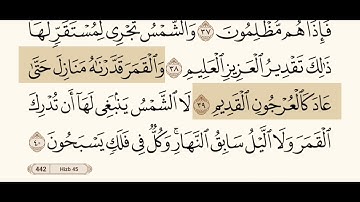 فَإِذَا هُم مُّظْلِمُونَ ٣٧ وَٱلشَّمْسُ تَجْرِى لِمُسْتَقَرٍّ لَّهَا
ذَٰلِكَ تَقْدِيرُ ٱلْعَزِيزِ ٱلْعَلِيمِ ٣٨ وَٱلْقَمَرَ قَدَّرْنَٰهُ مَنَازِلَ حَتَّىٰ
عَادَ كَٱلْعُرْجُونِ ٱلْقَدِيمِ ٣٩ لَا ٱلشَّمْسُ يَنۢبَغِى لَهَآ أَن تُدْرِكَ
ٱلْقَمَرَ وَلَا ٱلَّيْلُ سَابِقُ ٱلنَّهَارِ ۚ وَكُلٌّ فِى فَلَكٍ يَسْبَحُونَ ٤٠
442 Hizb 45